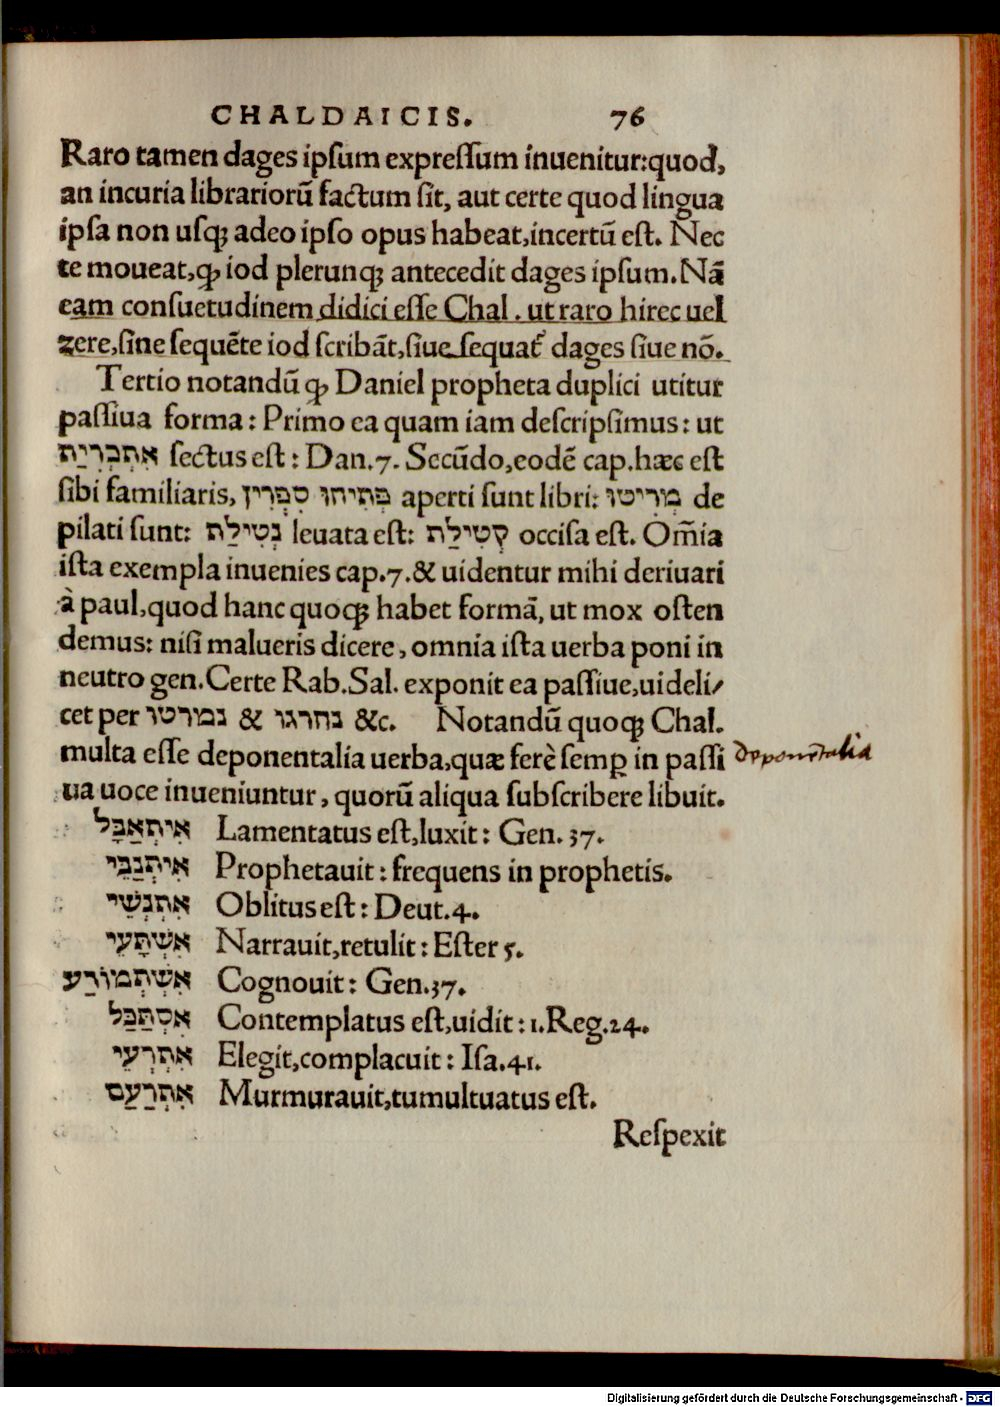 CHALDAICIS. 76
Raro tamen dages ipſum expreſſum inuenitur:quod,
an incuria librariorũ factum ſit, aut certe quod lingua
ipſa non uſqꝫ adeo ipſo opus habeat,incertũ eſt. Nec
te moueat,ꝙ iod plerunqꝫ antecedit dages ipſum.Nã
eam conſuetudinem didici eſſe Chal. ut raro hirec uel
zere,ſine ſequẽte iod ſcribãt,ſiue ſequat᷑ dages ſiue nõ.
Tertio notandũ ꝙ Daniel propheta duplici utitur
paſſiua forma: Primo ea quam iam deſcripſimus: ut
אִתְכְּרִיַת ſectus eſt: Dan.7. Secũdo,eodẽ cap.hæc eſt
ſibi familiaris, פְּתִיחוּ סִפְרִין aperti ſunt libri: מְרִיטוּ de
pilati ſunt: נְטִילַת leuata eſt: קְטִילַת occiſa eſt. Om̃ia
iſta exempla inuenies cap.7.& uidentur mihi deriuari
à paul,quod hanc quoqꝫ habet formã, ut mox oſten
demus: niſi malueris dicere, omnia iſta uerba poni in
neutro gen.Certe Rab.Sal. exponit ea paſſiue,uideli⸗
cet per נמורטו & נהרגו &c. Notandũ quoqꝫ Chal.
multa eſſe deponentalia uerba,quæ ferè ſemꝑ in paſſi
ua uoce inueniuntur, quorũ aliqua ſubſcribere libuit.
deponẽtalia
אִיתְאַבָּל Lamentatus eſt,luxit: Gen.37.
אִיתְנַבֵּי Prophetauit: frequens in prophetis.
אִתְנְשֵׁי Oblitus eſt: Deut.4.
אִשְׁתָּעֵי Narrauit,retulit: Eſter 5.
אִשְׁתְּמוֹדַע Cognouit: Gen.37.
אִסְתַּכַּל Contemplatus eſt,uidit:1.Reg.24.
אִתְרְעֵי Elegit,complacuit: Iſa.41.
אִתְרַעַם Murmurauit,tumultuatus eſt.
Reſpexit
Digitalisierung gefördert durch die Deutsche Forschungsgemeinschaft - DFG